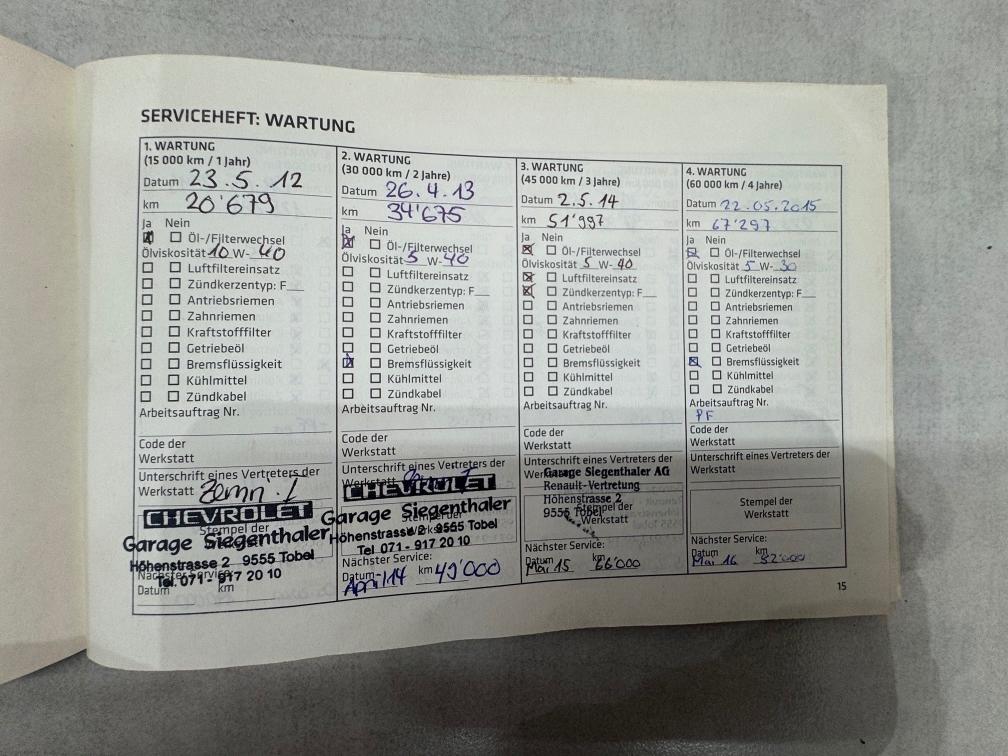 SERVICEHEFT: WARTUNG
1. WARTUNG
(15 000 km / 1 Jahr)
Datum 23.5.12
km 20'679
Ja Nein
Öl-/Filterwechsel
Ölviskosität 10 W-40
Luftfiltereinsatz
Zündkerzentyp: F__
Antriebsriemen
Zahnriemen
Kraftstofffilter
Getriebeöl
Bremsflüssigkeit
Kühlmittel
Zündkabel
Arbeitsauftrag Nr.
Code der
Werkstatt
Unterschrift eines Vertreters der
Werkstatt
CHEVROLET
Stempel der
Garage Siegenthaler
Höhenstrasse 2 9555 Tobel
Tel. 071 - 917 20 10
Nächster Service:
Datum km
2. WARTUNG
(30 000 km / 2 Jahre)
Datum 26.4.13
km 34'675
Ja Nein
Öl-/Filterwechsel
Ölviskosität 5 W-40
Luftfiltereinsatz
Zündkerzentyp: F__
Antriebsriemen
Zahnriemen
Kraftstofffilter
Getriebeöl
Bremsflüssigkeit
Kühlmittel
Zündkabel
Arbeitsauftrag Nr.
Code der
Werkstatt
Unterschrift eines Vertreters der
Werkstatt
CHEVROLET
Garage Siegenthaler
Stempel der
Werkstatt
Höhenstrasse 2 9555 Tobel
Tel 071 - 917 20 10
Nächster Service:
Datum April 14 km 49'000
3. WARTUNG
(45 000 km / 3 Jahre)
Datum 2.5.14
km 51'997
Ja Nein
Öl-/Filterwechsel
Ölviskosität 5 W-40
Luftfiltereinsatz
Zündkerzentyp: F__
Antriebsriemen
Zahnriemen
Kraftstofffilter
Getriebeöl
Bremsflüssigkeit
Kühlmittel
Zündkabel
Arbeitsauftrag Nr.
Code der
Werkstatt
Unterschrift eines Vertreters der
Werkstatt
Garage Siegenthaler AG
Renault-Vertretung
Höhenstrasse 2
9555 Tobel
Stempel der
Werkstatt
Nächster Service:
Datum Mai 15 km 66'000
4. WARTUNG
(60 000 km / 4 Jahre)
Datum 22.05.2015
km 67'297
Ja Nein
Öl-/Filterwechsel
Ölviskosität 5 W-30
Luftfiltereinsatz
Zündkerzentyp: F__
Antriebsriemen
Zahnriemen
Kraftstofffilter
Getriebeöl
Bremsflüssigkeit
Kühlmittel
Zündkabel
Arbeitsauftrag Nr.
PF
Code der
Werkstatt
Unterschrift eines Vertreters der
Werkstatt
Stempel der
Werkstatt
Nächster Service:
Datum Mai 16 km 82'000
15